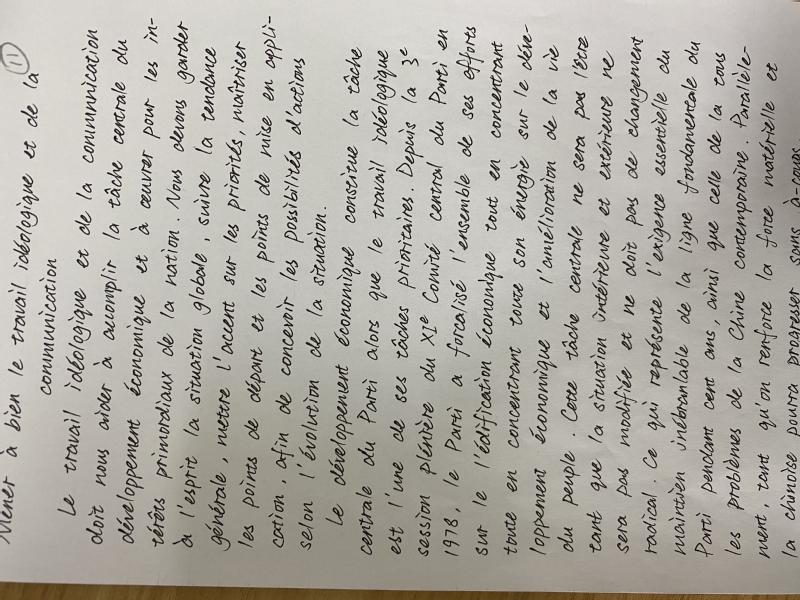 Mener à bien le travail idéologique et de la ①
communication
Le travail idéologique et de la communication
doit nous aider à accomplir la tâche centrale du
développement économique et à œuvrer pour les in-
térêts primordiaux de la nation. Nous devons garder
à l'esprit la situation globale, suivre la tendance
générale, mettre l'accent sur les priorités, maîtriser
les points de départ et les points de mise en appli-
cation, afin de concevoir les possibilités d'actions
selon l'évolution de la situation.
Le développement économique constitue la tâche
centrale du Parti alors que le travail idéologique
est l'une de ses tâches prioritaires. Depuis la 3e
session plénière du XIe Comité central du Parti en
1978, le Parti a forcalisé l'ensemble de ses efforts
sur le l'édification économique tout en concentrant
toute en concentrant toute son énergie sur le déve-
loppement économique et l'amélioration de la vie
du peuple. Cette tâche centrale ne sera pas l'être
tant que la situation intérieure et extérieure ne
sera pas modifiée et ne doit pas de changement
radical. Ce qui représente l'exigence essentielle du
maintien inébranlable de la ligne fondamentale du
Parti pendant cent ans, ainsi que celle de la tous
les problèmes de la Chine contemporaine. Parallèle-
ment, tant qu'on renforce la force matérielle et
la chinoise pourra progresser sans à-coups